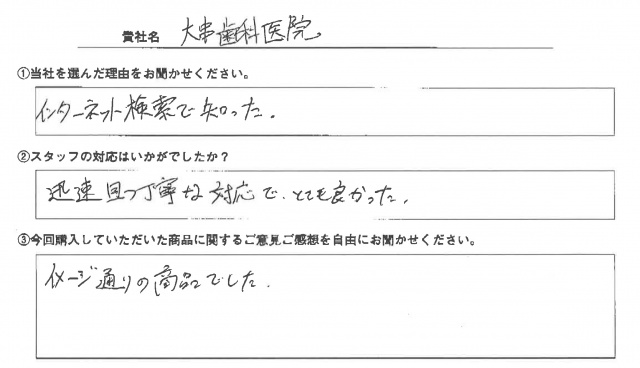 貴社名 大串歯科医院
①当社を選んだ理由をお聞かせください。
インターネット検索で知った。
②スタッフの対応はいかがでしたか？
迅速且つ丁寧な対応で、とても良かった。
③今回購入していただいた商品に関するご意見ご感想を自由にお聞かせください。
イメージ通りの商品でした。